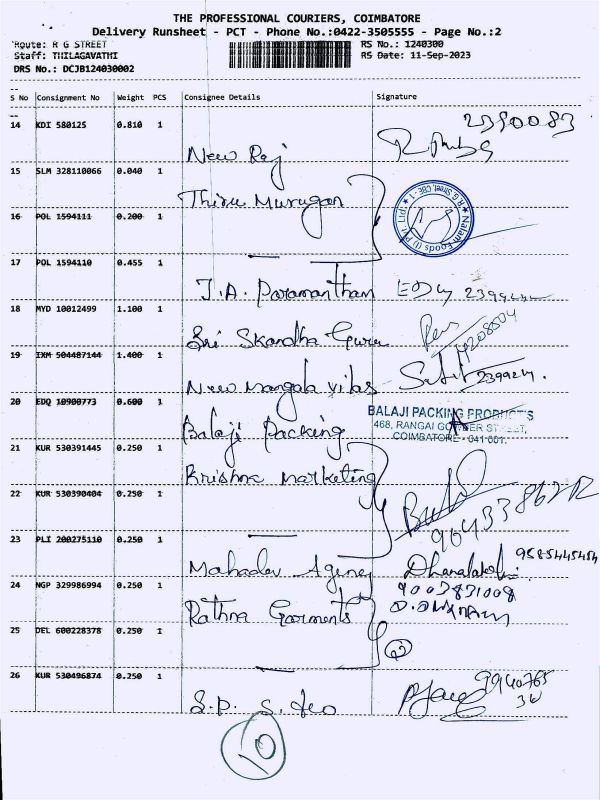 THE PROFESSIONAL COURIERS, COIMBATORE
Delivery Runsheet - PCT - Phone No.:0422-3505555 - Page No.:2
Route: R G STREET RS No.: 1240300
Staff: THILAGAVATHI RS Date: 11-Sep-2023
DRS No.: DCJB124030002
S No Consignment No Weight PCS Consignee Details Signature
14 KDI 580125 0.810 1 2390083
New Raj
15 SLM 328110066 0.040 1
Thiru Murugan
Nalam Foods (I) Pvt. Ltd. ★ R G Street, CBE - 1. ★
16 POL 1594111 0.200 1
17 POL 1594110 0.455 1
J.A. Paramanthan
18 MYD 10012499 1.100 1
Sri Skandha Guru 4208504
19 IXM 504487144 1.400 1
New Mangala Vilas 2399244.
20 EDQ 10900773 0.600 1
BALAJI PACKING PRODUCTS
468, RANGAI GOWDER STREET,
COIMBATORE - 641 001.
Balaji Packing
21 KUR 530391445 0.250 1
Krishna Marketing
22 KUR 530390404 0.250 1
23 PLI 200275110 0.250 1
Mahadev Agency 9585445454
24 NGP 329986994 0.250 1 9003831008
Rathna Garments
25 DEL 600228378 0.250 1
26 KUR 530496874 0.250 1 9940765
S.P. S. Geo
10